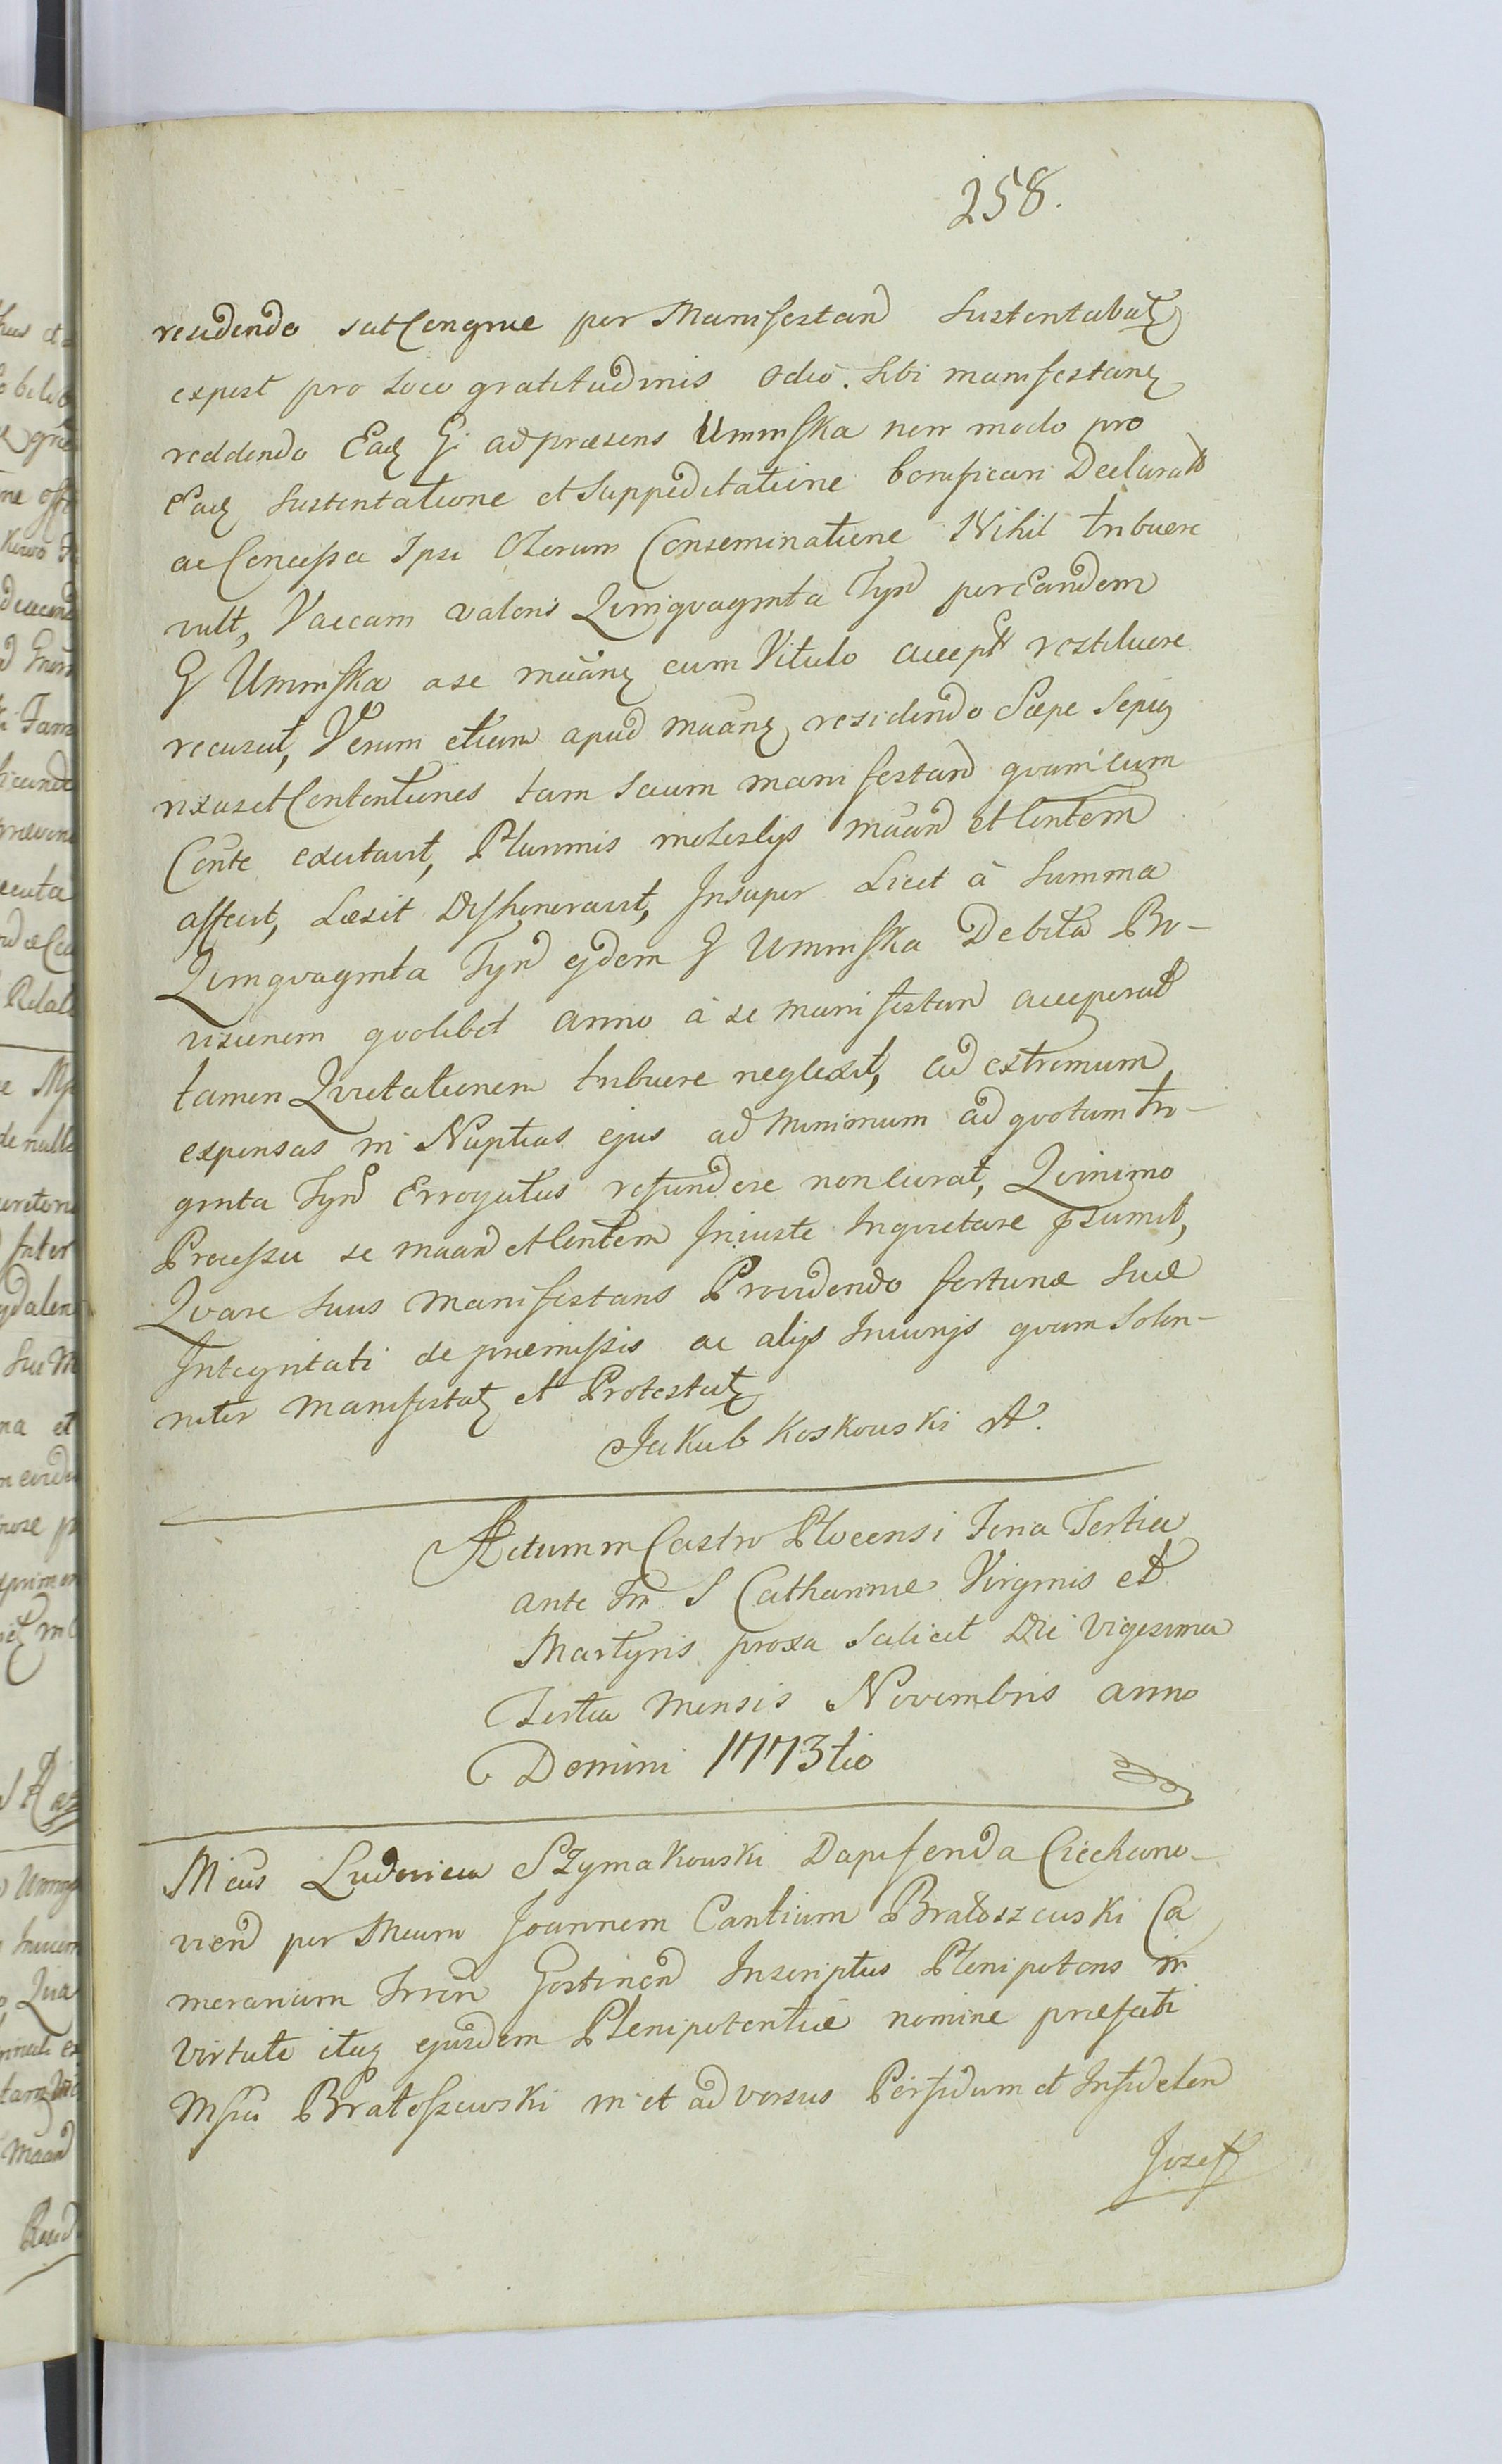 258.
residendo sat Congrue per Manifestand Sustentabatz
expost pro Loco gratitudinis Odio. Sibi manifestanz
reddendo Eadz G. ad præsens Uminska non modo pro
Eadz Sustentatione et Suppeditatione bonificari Declarata
ac Concessa Ipsi Olerum Conseminatione Nihil tribuere
vult, Vaccam valoris Quinquaginta Tynd per Eandem
G Uminska a se maanz cum Vitulo accept restituere
recusat, Verum etiam apud maanz residendo Sæpe Sepiq
rixas et Contentiones tam Secum manifestand quam cum
Conte excitavit, Plurimis molestijs maand et Contem
affecit, Læsit Dishonoravit, Insuper Licet à Summa
Quinquaginta Tynd ejdem G Uminska Debita Pro-
visionem quolibet anno à se manifestand acceperat
tamen Quietationem tribuere neglexit, ad extremum
expensas in Nuptias ejus ad minimum ad quotam tri-
ginta Tynd Errogatas refundere non curat, Quinimo
Processu se maand et Contem Injuste Inquietare psumit,
Quare Suus Manifestans Providendo fortunæ Suæ
Integritati de præmissis ac alijs Injurijs quam Solen-
niter Manifestatz et Protestatz
Jakub Koskowski A.
Actum in Castro Plocensi Feria Tertia
ante Fm S Catharinæ Virginis et
Martyris proxa Scilicet Die Vigesima
Tertia Mensis Novembris anno
Domini 1773tio
Mcus Ludovicus Szymakowski Dapiferida Ciechano-
vien per Mcum Joannem Cantium Bratoszewski Ca
merarium Trren Gostinen Inscriptus Plenipotens in
Virtute itaq ejusdem Plenipotentiæ nomine præfati
Msci Bratoszewski in et adversus Perfidum et Infidelem
Jozef